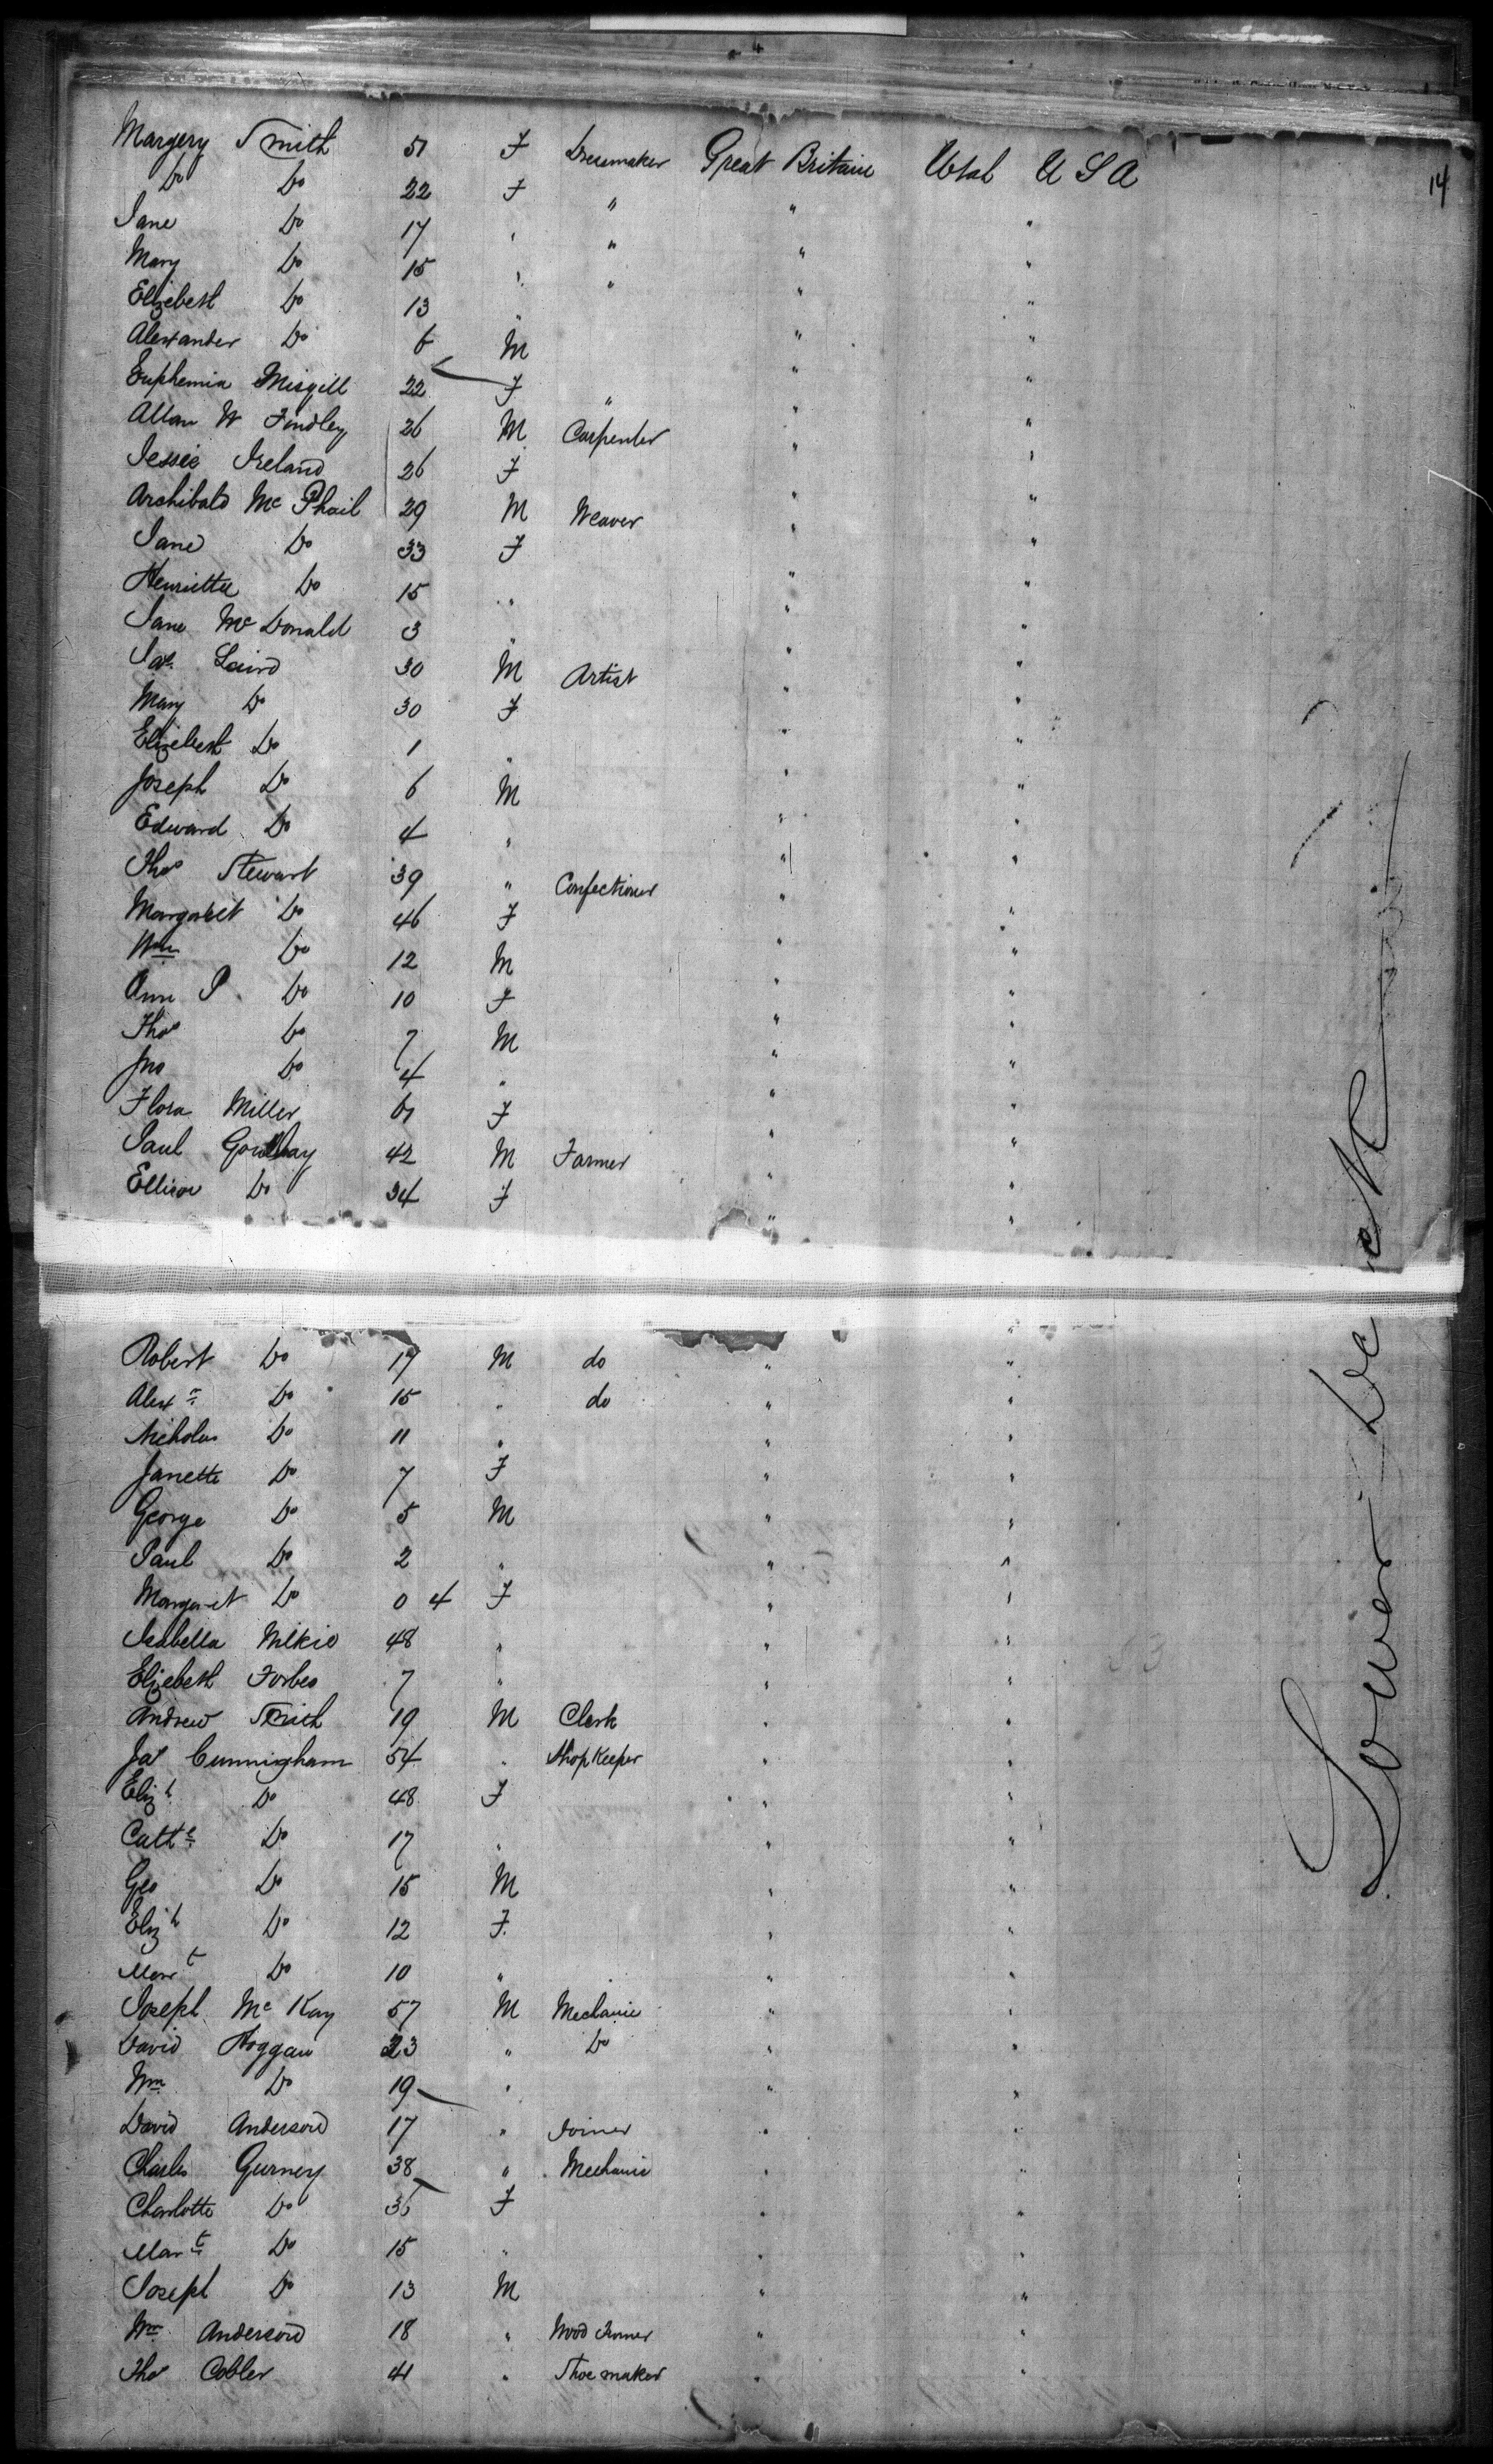 4
14
Margery Smith 51 F Dressmaker Great Britain Utah U S A
Do Do 22 F " " "
Jane Do 17 " " " "
Mary Do 15 " " " "
Elizebeth Do 13 " " "
Alexander Do 6 M " "
Euphemia 22 F " " "
Allan W Findley 26 M Carpenter " "
Jessie Ireland 26 F " "
Archibald Mc Phail 29 M Weaver " "
Jane Do 33 F " "
Henrietta Do 15 " " "
Jane Mc Donald 3 " " "
Jas Laird 30 M Artist " "
Mary Do 30 F " "
Elizebeth Do 1 " " "
Joseph Do 6 M " "
Edward Do 4 " " "
Thos Stewart 39 " Confectioner " "
Margaret Do 46 F " "
Wm Do 12 M " "
Ann P. Do 10 F " "
Thos Do 7 M " "
Jno Do 4 " " "
Flora Miller F " "
Paul 42 M Farmer " "
Ellison Do 34 F " "
Robert Do 17 M do " "
Alexr Do 15 " do " "
Nicholas Do 11 " " "
Janette Do 7 F " "
George Do 5 M " "
Paul Do 2 " " "
Margaret Do 0 4 F " "
Isabella 48 " " "
Elizebeth Forbes 7 " " "
Andrew Smith 19 M Clerk " "
Jas Cunningham 54 " Shop Keeper " "
Elizh Do 48 F " "
Cathe Do 17 " " "
Geo Do 15 M " "
Elizh Do 12 F. " "
Mart Do 10 " " "
Joseph Mc Kay 57 M Mechanic " "
David Hoggan 23 " Do " "
Wm Do 19 " " "
David Anderson 17 " Joiner " "
Charles Gurney 38 " Mechanic " "
Charlotte Do 36 F " "
Mart Do 15 " " "
Joseph Do 13 M " "
Wm Anderson 18 " Wood " "
Thos Cobler 41 " Shoemaker " "
Lower